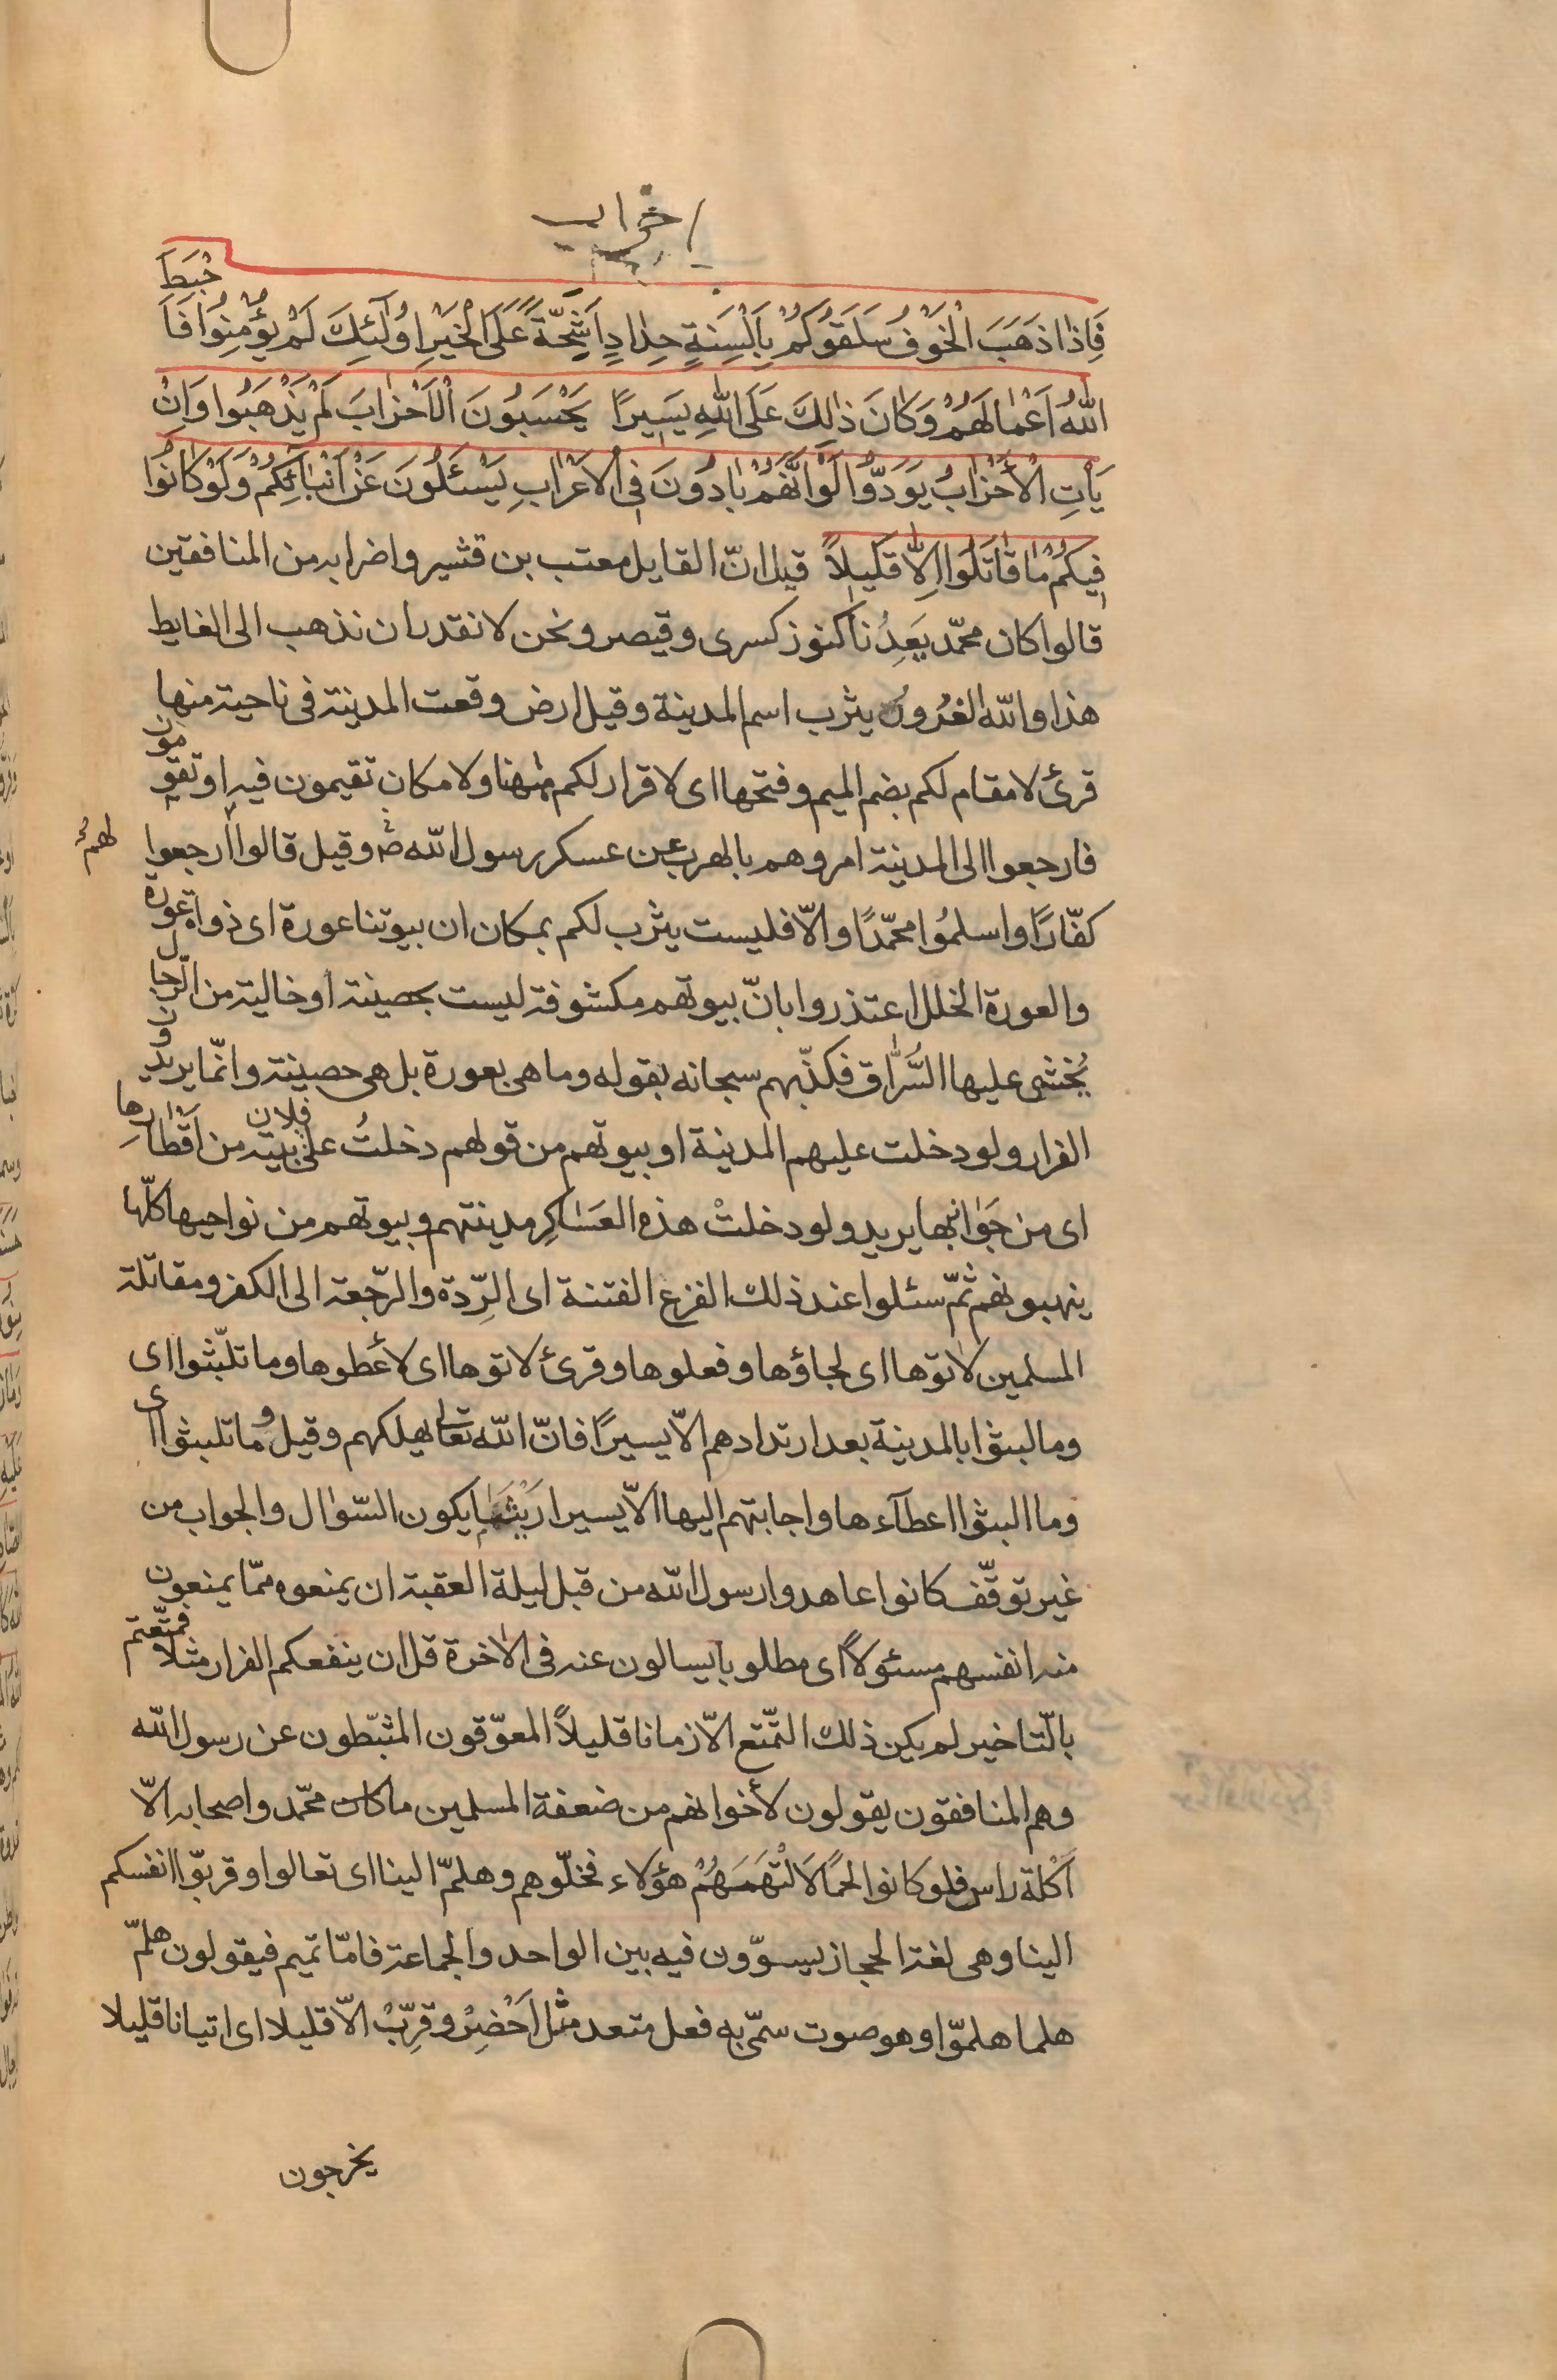 احزاب
فَاِذا ذَهَبَ الْخَوْفُ سَلَقُوكُمْ بِاَلْسِنَةٍ حِدادٍ اَشِحَّةً عَلَى الْخَيْرِ اوُلٰٓئِكَ لَمْ يُؤْمِنُوا فَاَحْبَطَ
اللّٰهُ اَعْمٰالَهُمْ وَكٰانَ ذٰلِكَ عَلَى اللّٰهِ يَسِيرًا يَحْسَبُونَ الْاَحْزٰابَ لَمْ يَذْهَبُوا وَاِنْ
يَأْتِ الْأَحْزٰابُ يَوَدُّوا لَوْ اَنَّهُمْ بٰادُونَ فِى الْاَعْرٰابِ يَسْئَلُونَ عَنْ اَنْبٰائِكُمْ وَلَوْ كٰانُوا
فِيكُمْ مٰا قٰاتَلُوا اِلّٰا قَلِيلًا قيل انّ القايل معتب بن قشير واضرابه من المنافقين
قالوا كان محمّد يَعِدُنا كنوز كسرى وقيصر ونحن لا نقدر ان نذهب الى الغايط
هذا والله الغرور يثرب اسم المدينة وقيل ارض وقعت المدينة فى ناحية منها
قرئ لا مقام لكم بضم الميم وفتحها اى لا قرار لكم هٰهنا ولا مكان تقيمون فيه او تقومون
فارجعوا الى المدينة امروهم بالهرب عن عسكر رسول الله ص وقيل قالوا ارجعوا لهم
كفّارًا واسلمُوا محمّدًا والّا فليست يثرب لكم بمكان ان بيوتنا عورة اى ذوات عورة
والعورة الخلل اعتذروا بانّ بيوتهم مكشوفة ليست بحصينة او خالية من الرّجال
يُخشى عليها السُّرّاق فكذّبهم سبحانه بقوله وما هى بعورة بل هى حصينة وانّما يريدون
الفرار ولو دخلت عليهم المدينة او بيوتهم من قولهم دخلتُ على فلان بيته من اَقْطارِها
اى من جَوٰانبها يريد ولو دخلتْ هذه العَسٰاكِر مدينتهم وبيوتهم من نواحيها كلّها
ينهبونهم ثمّ سئلوا عند ذلك الفزع الفتنة اى الرِّدة والرّجعة الى الكفر ومقاتلة
المسلمين لاٰتوها اى لجاؤها وفعلوها وقرئ لاتوها اى لأعطوها وما تلبّثوا اى
وما لبثوا بالمدينة بعد ارتدادهم الّا يسيرًا فانّ الله تعالى يهلكهم وقيل وما تلبثوا اى
وما البثوا اعطآءها واجابتهم اليها الّا يسيرا رَيْثَمٰا يكون السّؤال والجواب من
غير توقّف كانوا عاهدوا رسول الله من قبل ليلة العقبة ان يمنعوه ممّا يمنعون
منه انفسهم مسئولًا اى مطلوبا يسالون عنه فى الاٰخرة قل ان ينفعكم الفرار مثلا فمتّعتم
بالتّاخير لم يكن ذلك التّمتع الّا زمانا قليلًا المعوّقون المثبّطون عن رسول الله
وهم المنافقون يقولون لأخوانهم من ضعفة المسلمين ما كان محمّد واصحابه الّا
اَكْلَة راس فلو كانوا لحمًا لَالْتَهَمَهُمْ هؤلاء فخلّوهم وهلمّ الينا اى تعالوا وقربّوا انفسكم
الينا وهى لغة الحجاز يسوّون فيه بين الواحد والجماعة فامّا تميم فيقولون هلمّ
هلما هلموّا وهو صوت سمّى به فعل متعد مثل اَحْضِرْ وقرِّبْ الّا قليلا اى اتيانا قليلا
يخرجون